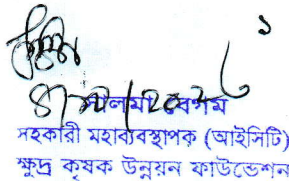 ১
সালমা বেগম
সহকারী মহাব্যবস্থাপক (আইসিটি)
ক্ষুদ্র কৃষক উন্নয়ন ফাউন্ডেশন